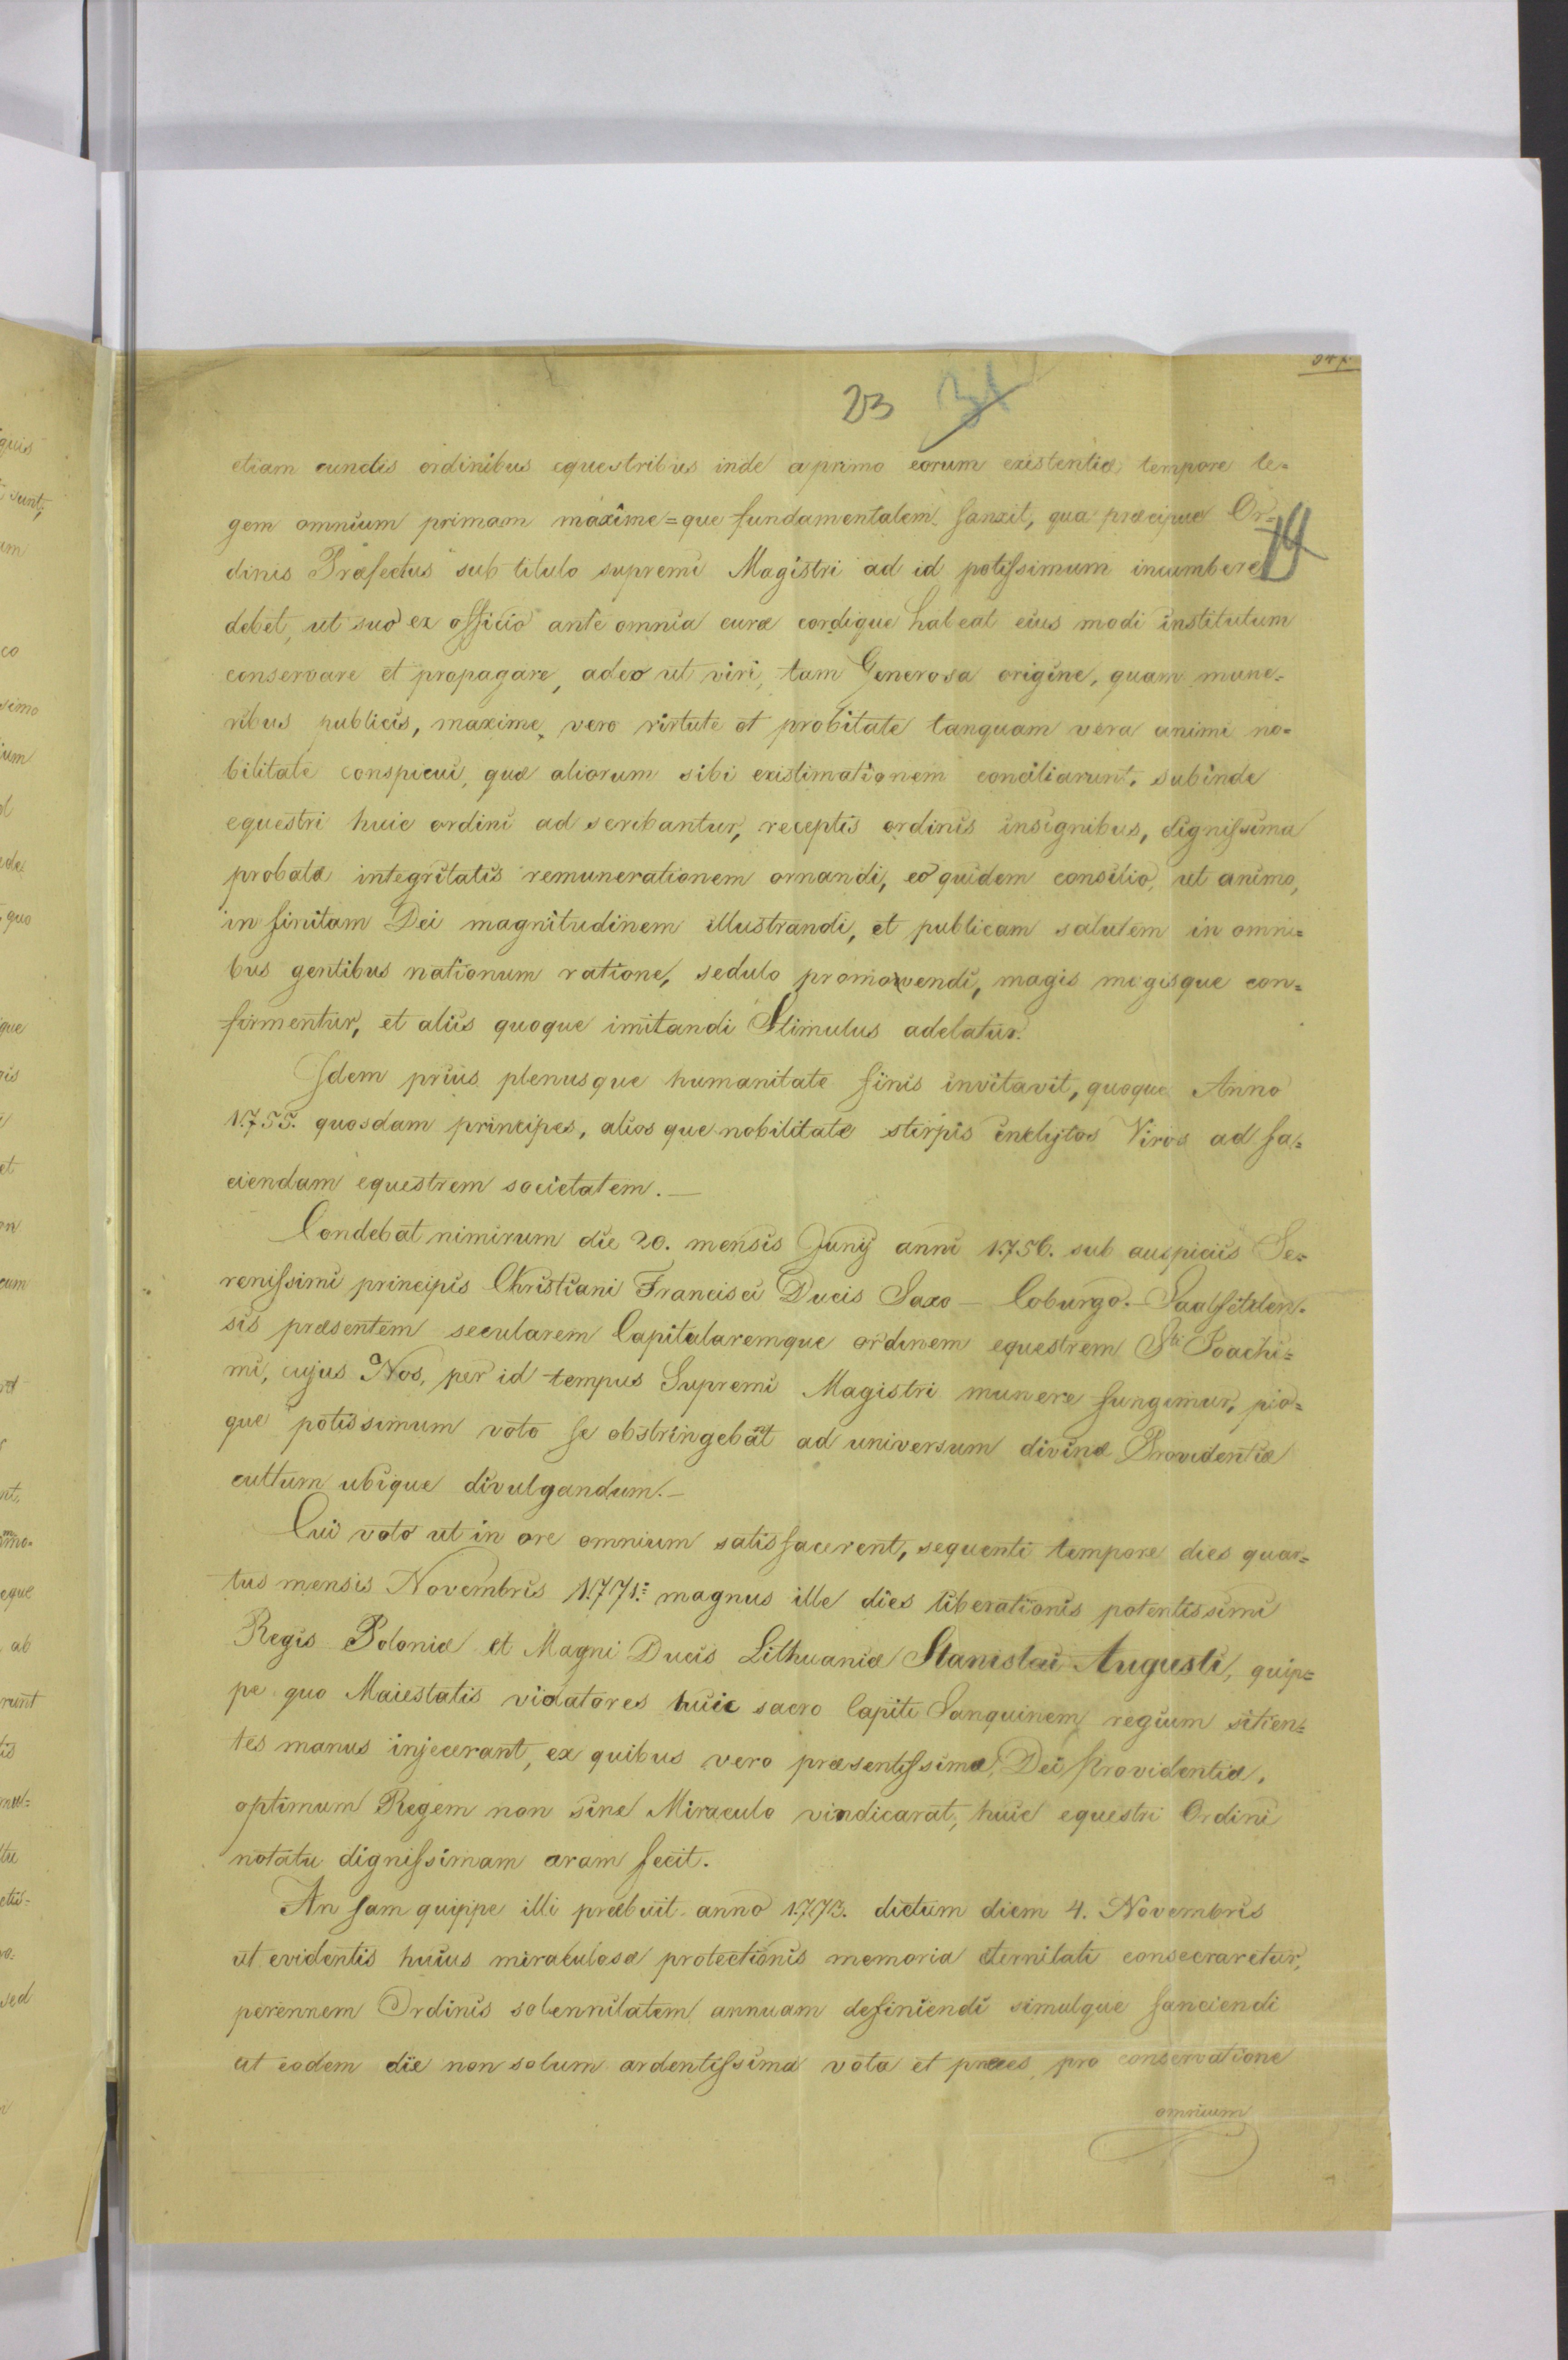 23 31
etiam cunctis ordinibus equestribus inde a primo eorum existentiæ tempore le=
gem omnium primam maxime=que fundamentalem sanxit, qua præcipue Or=
14
dinis Præfectus sub titulo supremi Magistri ad id potissimum incumbere
debet, ut suo ex officio ante omnia curæ cordique habeat eius modi institutum
conservare et propagare, adeo ut viri, tam Generosa origine, quam mune=
ribus publicis, maxime vero virtute et probitate tanquam vera animi no=
bilitate conspicui, quæ aliorum sibi existimationem conciliarunt, subinde
equestri huic ordini ad scribantur, receptis ordinis insignibus, dignissima
probatæ integritatis remunerationem ornandi, eo quidem consilio, ut animo,
in finitam Dei magnitudinem illustrandi, et publicam salutem in omni=
bus gentibus nationum ratione, sedulo promovendi, magis megisque con=
firmentur, et aliis quoque imitandi Stimulus adelatur.
Idem prius plenusque humanitate finis invitavit, quoque Anno
1755. quosdam principes, alios que nobilitate stirpis inclytos Viros ad fa=
ciendam equestrem societatem.—
Condebat nimirum die 20. mensis Junÿ anni 1756. sub auspiciis Se=
renissimi principis Christiani Francisci Ducis Saxo — Coburgo.- Saalfelden=
sis præsentem secularem Capitularemque ordinem equestrem Sti Joachi=
mi, cujus Nos, per id tempus Supremi Magistri munere fungimur, pio=
que potissimum voto se obstringebant ad universum divinæ Providentiæ
cultum ubique divulgandum.—
Cui voto ut in ore omnium satisfacerent, sequenti tempore dies quar=
tus mensis Novembris 1771: magnus ille dies liberationis potentissimi
Regis Poloniæ et Magni Ducis Lithuaniæ Stanislai Augusti, quip=
pe quo Maiestatis violatores huic sacro Capiti Sanguinem regium sitien=
tes manus injecerant, ex quibus vero præsentissima Dei Providentia,
optimum Regem non sine Miraculo vindicarat, huic equestri Ordini
notatu dignissimam aram fecit.
An sam quippe illi præbuit anno 1773. dictum diem 4. Novembris
ut evidentis huius miraculosæ protectionis memoria æternitati consecraretur,
perennem Ordinis solennitatem annuam definiendi simulque sanciendi
ut eodem die non solum ardentissima vota et preces pro conservatione
omnium